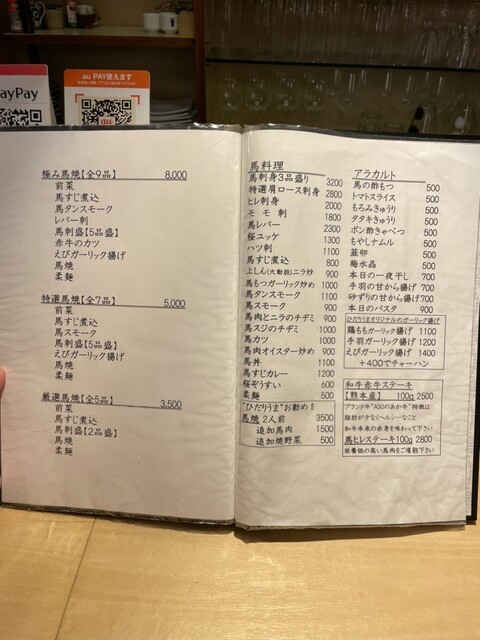 PayPay
au PAY使えます
au
極み馬焼【全9品】 8,000
前菜
馬すじ煮込
馬タンスモーク
レバー刺
馬刺盛【5品盛】
赤牛のカツ
えびガーリック揚げ
馬焼
柔麺
特選馬焼【全7品】 5,000
前菜
馬すじ煮込
馬スモーク
馬刺盛【5品盛】
えびガーリック揚げ
馬焼
柔麺
厳選馬焼【全5品】 3,500
前菜
馬すじ煮込
馬刺盛【2品盛】
馬焼
柔麺
馬料理
馬刺身3品盛り 3200
特選肩ロース刺身 2800
ヒレ刺身 2000
モモ刺 1800
馬レバー 2300
桜ユッケ 1300
ハツ刺 1100
馬すじ煮込 800
上しん(大動脈)ニラ炒 900
馬もつガーリック炒め 900
馬タンスモーク 1100
馬スモーク 900
馬肉とニラのチヂミ 900
馬スジのチヂミ 1000
馬カツ 1000
馬肉オイスター炒め 900
馬丼 1100
馬すじカレー 1200
桜ぞうすい 600
柔麺 500
"ひだりうま"お勧め!!
馬焼 2人前 3500
追加馬肉 1500
追加焼野菜 500
アラカルト
馬の酢もつ 500
トマトスライス 500
もろみきゅうり 500
タタキきゅうり 500
ポン酢きゃべつ 500
もやしナムル 500
韮卵 500
梅水晶 500
本日の一夜干し 700
手羽の甘から揚げ 700
砂ずりの甘から揚げ 700
本日のパスタ 900
ひだりうまオリジナルのガーリック揚げ
鶏ももガーリック揚げ 1100
手羽ガーリック揚げ 1200
えびガーリック揚げ 1400
+400でチャーハン
和牛赤牛ステーキ
【熊本産】 100g 2500
ブランド牛"ASOのあか牛"特徴は
脂肪が少なくヘルシーなこと
和牛本来の赤身を味わって下さい!
馬ヒレステーキ100g 2800
栄養価の高い馬肉をご堪能下さい